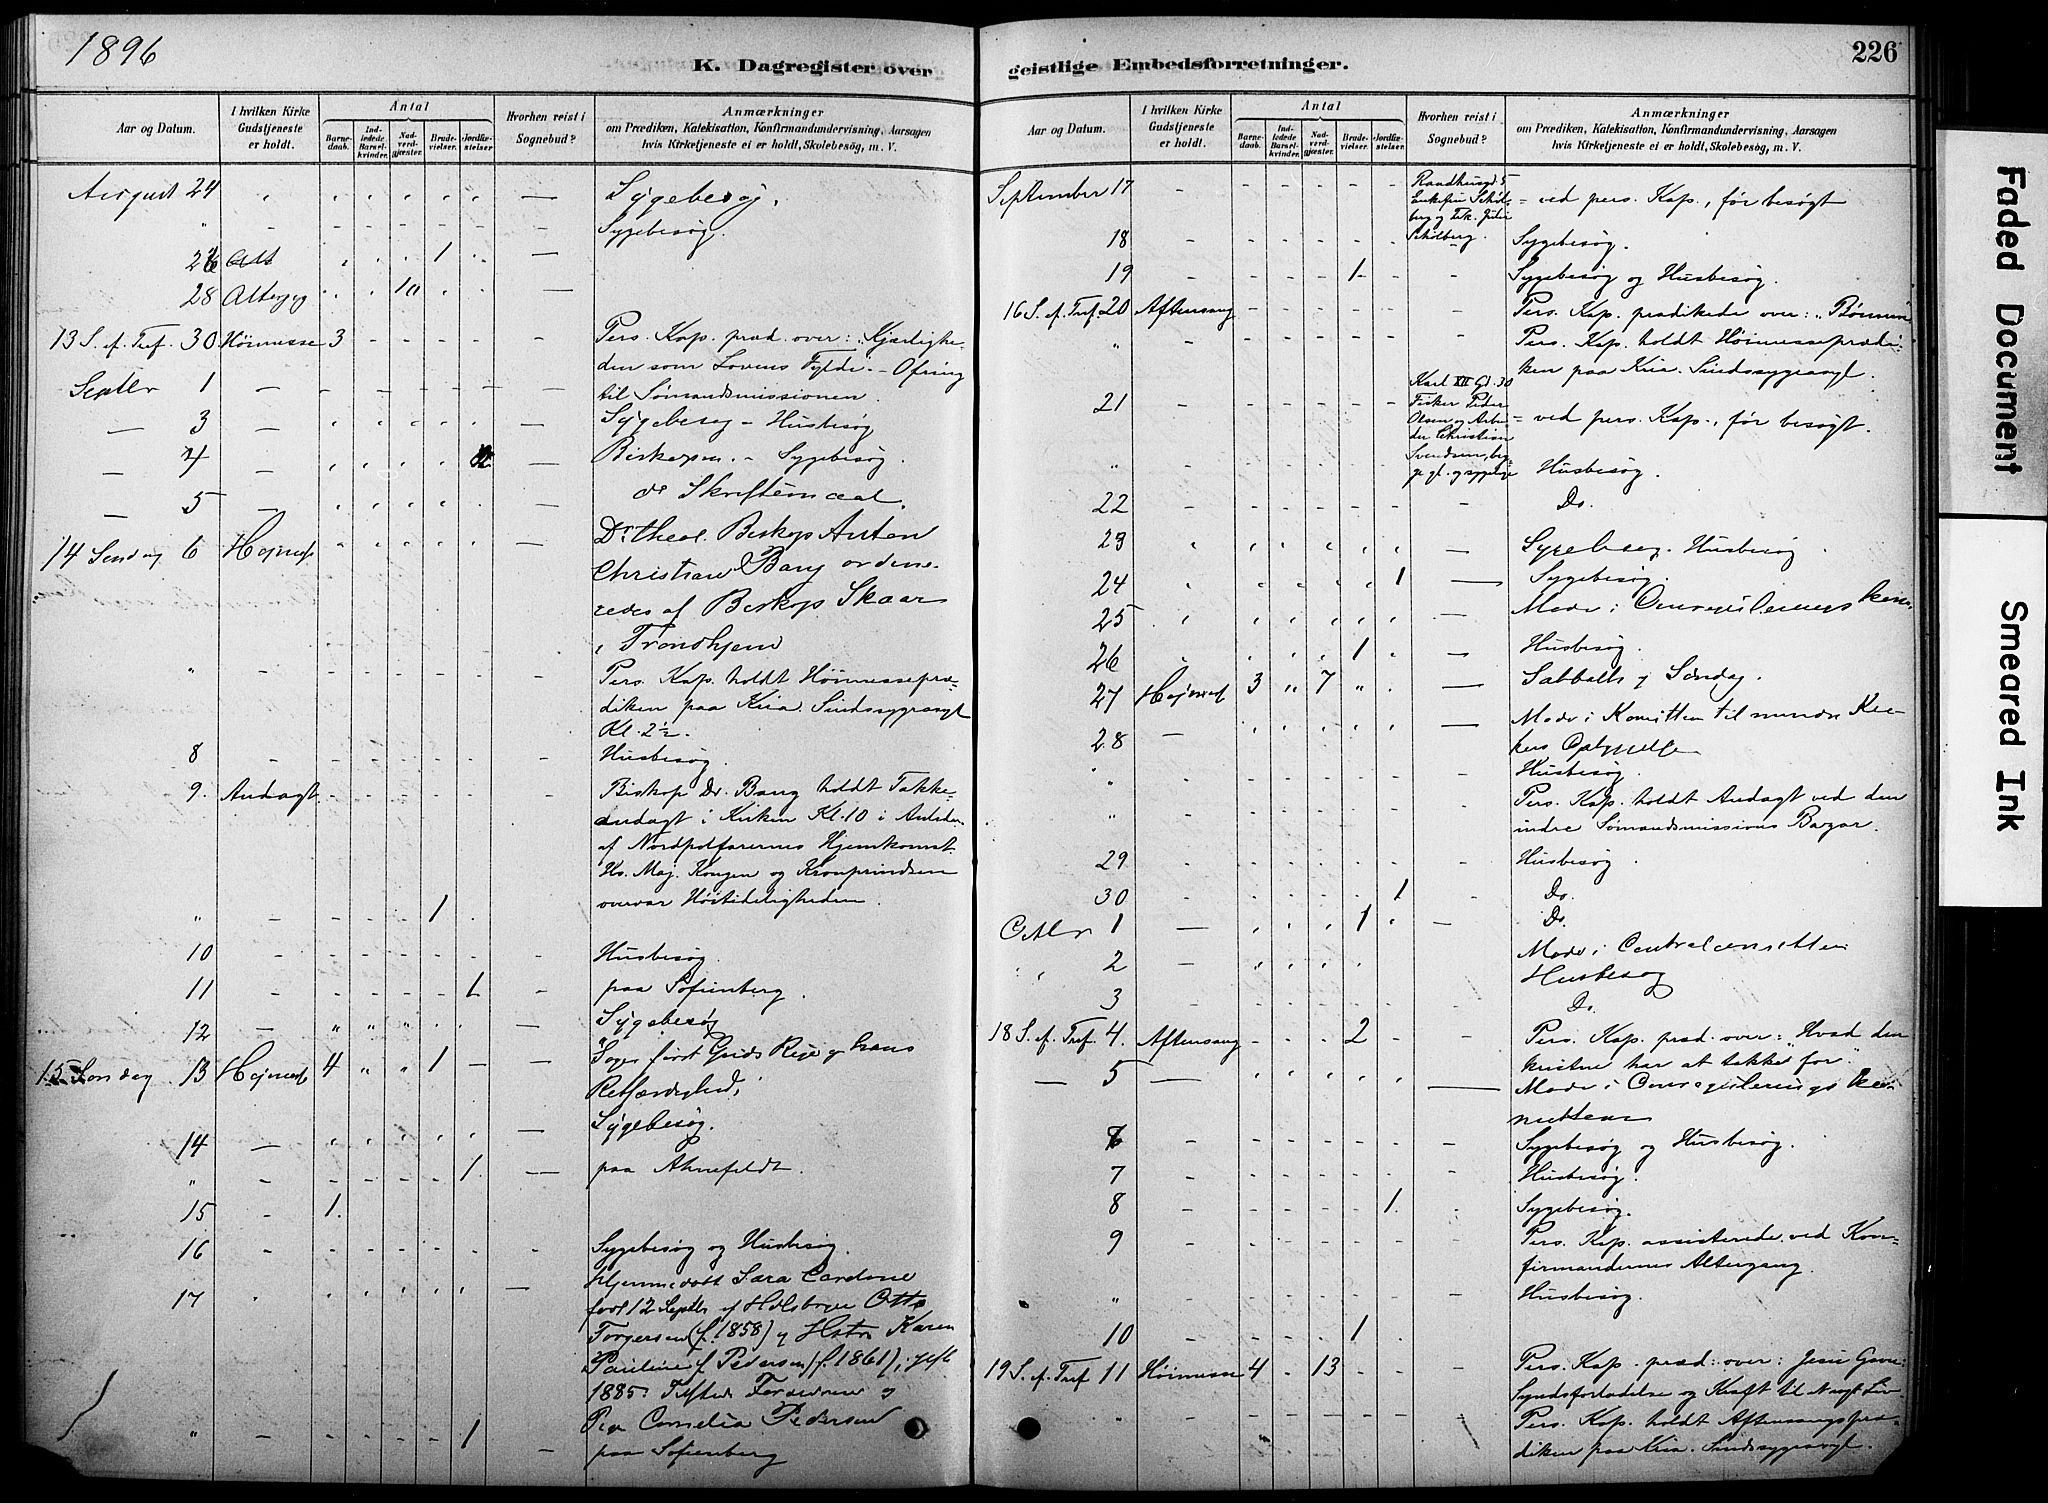 1896
K. Dagregister over
Aar og Datum.
I hvilken Kirke Gudstjeneste er holdt.
Antal
Barnedaab.
Indledede Barselkvinder.
Nadverdgjæster.
Brudevielser.
Jordfæstelser.
Hvorhen reist i Sognebud?
Anmærkninger
om Prædiken, Katekisation, Konfirmandundervisning, Aarsagen
hvis Kirketjeneste ei er holdt, Skolebesøg, m. V.
August 24 Sygebesøg.
" Sygebesøg.
26 1
28 10
13 S. ef. Tref. 30 Høimesse 3 Pers. Kap. præd. over: "Kjærlighe-
den som Lovens Fylde. - Ofring
til Sømandsmissionen.
Septbr 1
3 Sygebesøg - Husbesøg
4 Sygebesøg.
5 do Skriftemaal.
14 Søndag 6 Højmess Dr. theol. Biskop Anton
Christian Bang ordine-
redes af Biskop Skaar
i Trondhjem
" Pers. Kap. holdt Høimessepræ-
diken paa Kria. Sindssygeasyl
Kl. 2½.
8 Husbesøg.
9. Andagt Biskop Dr. Bang holdt Takke-
andagt i Kirken Kl. 10 i Anledn.
af Nordpolfarernes Hjemkomst.
Hs. Maj. Kongen og Kronprindsen
overvar Høitideligheden.
" 1
10 Husbesøg.
11 1 paa Sofienberg.
12 Sygebesøg
15 Søndag 13 Højmess 4 1 Søger først Guds Rige og hans
Retfærdighed.
14 Sygebesøg.
" 1. paa Ahnefeldt.
15 1.
16 Sygebesøg og Husbesøg.
17 Hjemmedøbt Sara
født 12 Septbr af Otto
Torgersen (f. 1858) og Hstr Karen
Pauline f. Pedersen (f. 1861), gift
1885.
Cornelia Pedersen
" 1 paa Sofienberg
geistlige Embedsforretninger.
226
Aar og Datum.
I hvilken Kirke Gudstjeneste er holdt.
Antal
Barnedaab.
Indledede Barselkvinder.
Nadverdgjæster.
Brudevielser.
Jordfæstelser.
Hvorhen reist i Sognebud?
Anmærkninger
om Prædiken, Katekisation, Konfirmandundervisning, Aarsagen
hvis Kirketjeneste ei er holdt, Skolebesøg, m. V.
September 17 Raadhusgd 5 = ved pers. Kap., før besøgt
18 Sygebesøg.
19 1 Sygebesøg og Husbesøg.
16 S. ef. Tref. 20 Aftensang Pers. Kap. prædikede over: "Bønnen"
" Pers. Kap. holdt Høimesseprædi-
ken paa Kria. Sindssygeasyl.
21 Karl XII Gd. 30
Fisker Peder
Olsen og Arbei-
der Christian
Svendsen, beg-
ge gl. og sygelige = ved pers. Kap., før besøgt.
" Husbesøg.
22 Do.
23 Sygebesøg. Husbesøg.
24 1 Sygebesøg.
25 Møde i
26 1 Husbesøg.
27 Højmess 3 " 7 " Sabbath og Søndag.
28 Møde i Komitteen til mindre Kir-
kers
" Husbesøg.
" Pers. Kap. holdt Andagt ved den
indre Sømandsmissions Bazar.
29 Husbesøg.
30 1 Do.
Octbr 1 1 Do.
2 Møde i Centralcomitteen
Husbesøg
3 Do.
18 S. ef. Tref. 4. Aftensang 2 Pers. Kap. præd. over: "Hvad den
kristne har at takke for".
5 Møde i
6 Sygebesøg og Husbesøg.
7 Husbesøg.
8 1. Sygebesøg.
9 Pers. Kap. assisterede ved Kon-
firmandernes Altergang.
" Husbesøg.
10 1
19 S. ef. Tref. 11 Høimesse 4 - 13 Pers. Kap. præd. over: Jesu Gave:
Syndsforladelse og Kraft til Nyt Liv
" Pers. Kap. holdt Aftensangspræ-
diken paa Kria. Sindssygeasyl.
Faded Document
Smeared Ink